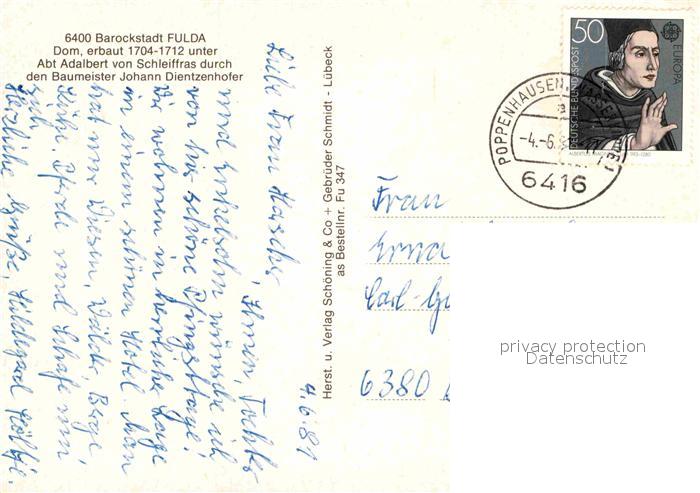 6400 Barockstadt FULDA
Dom, erbaut 1704-1712 unter
Abt Adalbert von Schleiffras durch
den Baumeister Johann Dientzenhofer
4.6.81
Liebe Frau
Ihnen, Tochter
und wünsche ich
von hier schöne Pfingsttage!
Wir wohnen in herrlicher Lage
in einem schönen Hotel. Man
hat nur Wiesen, Wälder, Berge,
Kühe, Pferde und Schafe um
sich.
Herzliche Grüße, Hildegard
Herst. u. Verlag Schöning & Co + Gebrüder Schmidt - Lübeck
as Bestellnr. Fu 347
50
DEUTSCHE BUNDESPOST
EUROPA
POPPENHAUSEN
-4.-6.
6416
Frau
Erna
Carl-
6380
privacy protection
Datenschutz